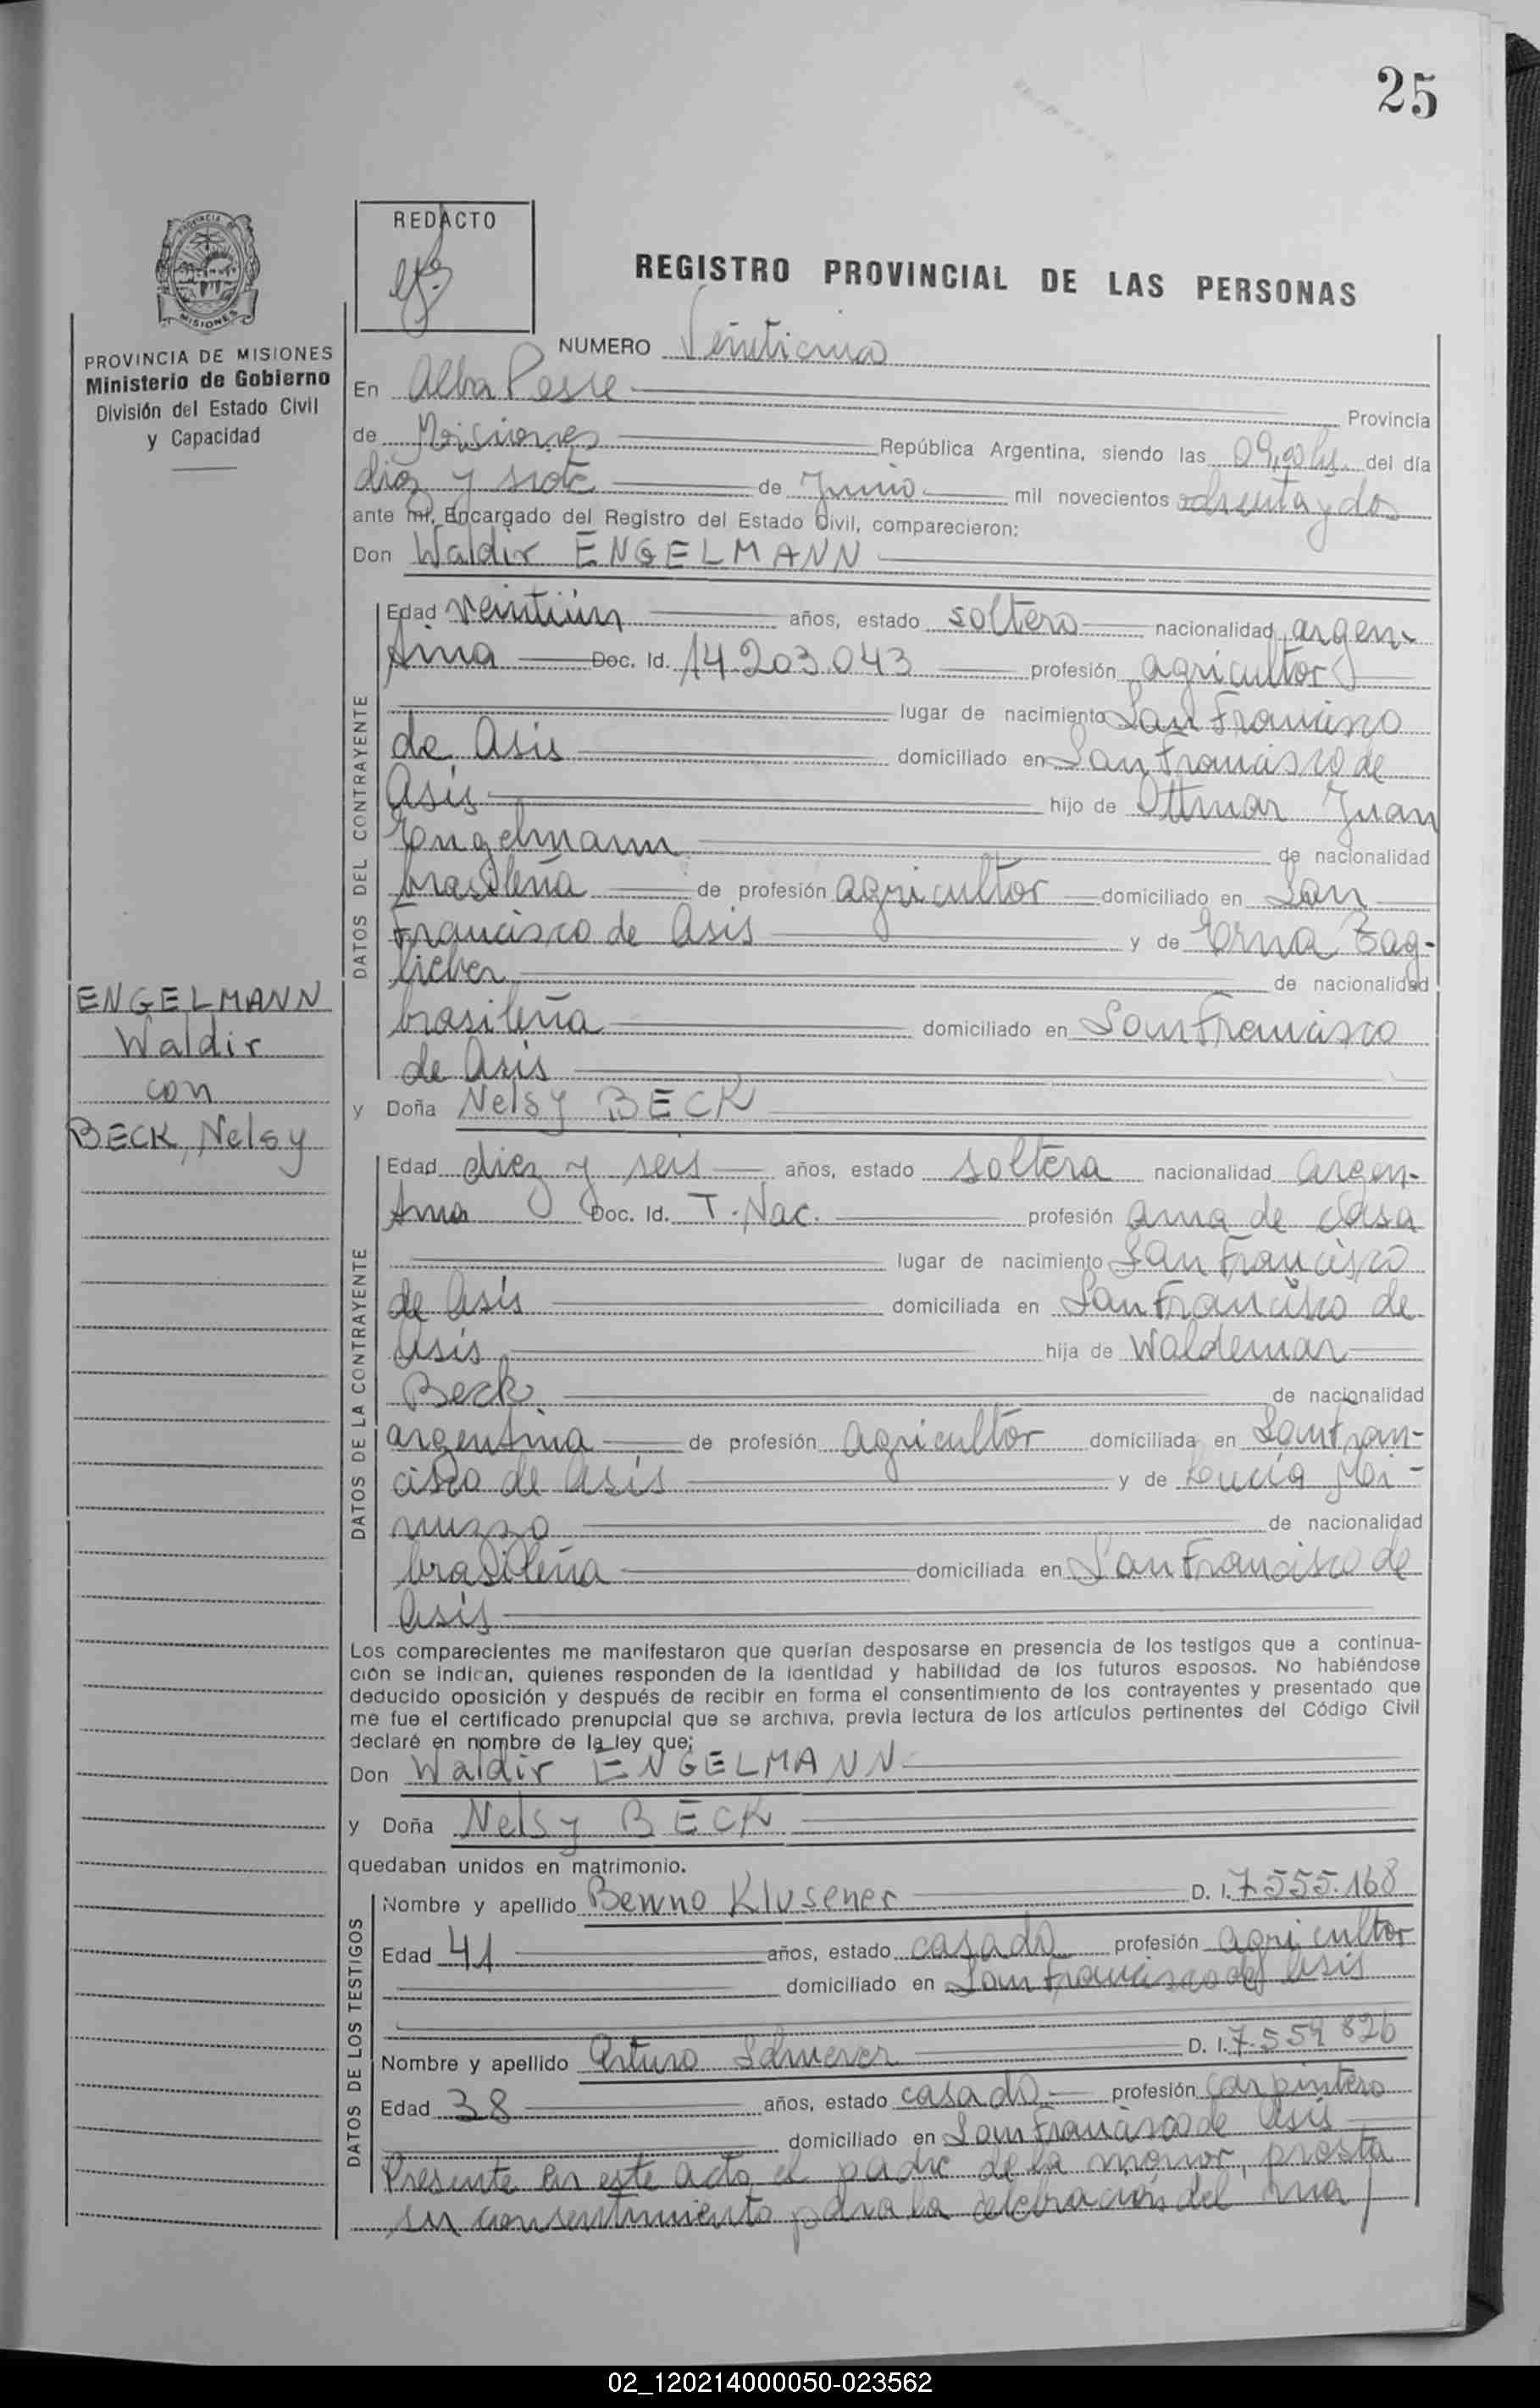 25
REDACTO
PROVINCIA DE MISIONES
Ministerio de Gobierno
División del Estado Civil
y Capacidad
REGISTRO PROVINCIAL DE LAS PERSONAS
NUMERO Veinticinco
En Alba Posse Provincia
de Misiones República Argentina, siendo las 09,00 hs. del día
diez y siete de Junio mil novecientos ochenta y dos
ante mí, Encargado del Registro del Estado Civil, comparecieron:
Don Waldir ENGELMANN
DATOS DEL CONTRAYENTE
Edad veintiún años, estado soltero nacionalidad argen-
tina Doc. Id. 14.203.043 profesión agricultor
lugar de nacimiento San Francisco
de Asis domiciliado en San Francisco de
Asis hijo de Ottmar Juan
Engelmann de nacionalidad
brasileña de profesión agricultor domiciliado en San
Francisco de Asis y de Erna Zag-
de nacionalidad
brasileña domiciliado en San Francisco
de Asis
ENGELMANN
Waldir
con
BECK, Nelsy
y Doña Nelsy BECK
DATOS DE LA CONTRAYENTE
Edad diez y seis años, estado soltera nacionalidad argen-
tina Doc. Id. T. Nac. profesión ama de casa
lugar de nacimiento San Francisco
de Asis domiciliada en San Francisco de
Asis hija de Waldemar
Beck de nacionalidad
argentina de profesión agricultor domiciliada en San Fran-
cisco de Asis y de Lucía Mi-
nuzzo de nacionalidad
brasileña domiciliada en San Francisco de
Asis
Los comparecientes me manifestaron que querían desposarse en presencia de los testigos que a continua-
ción se indican, quienes responden de la identidad y habilidad de los futuros esposos. No habiéndose
deducido oposición y después de recibir en forma el consentimiento de los contrayentes y presentado que
me fue el certificado prenupcial que se archiva, previa lectura de los artículos pertinentes del Código Civil
declaré en nombre de la ley que;
Don Waldir ENGELMANN
y Doña Nelsy BECK
quedaban unidos en matrimonio.
DATOS DE LOS TESTIGOS
Nombre y apellido Benno Klusener D. I. 7.555.168
Edad 41 años, estado casado profesión agricultor
domiciliado en San Francisco de Asis
Nombre y apellido Arturo D. I. 7.559.826
Edad 38 años, estado casado profesión carpintero
domiciliado en San Francisco de Asis
Presente en este acto el padre de la menor, presta
su consentimiento para la celebración del ma
02_120214000050-023562